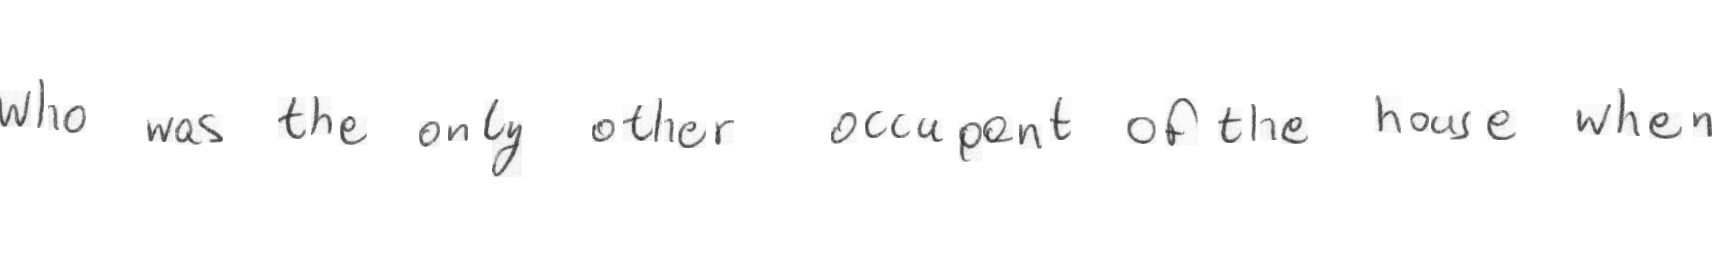 who was the only other occupant of the house when